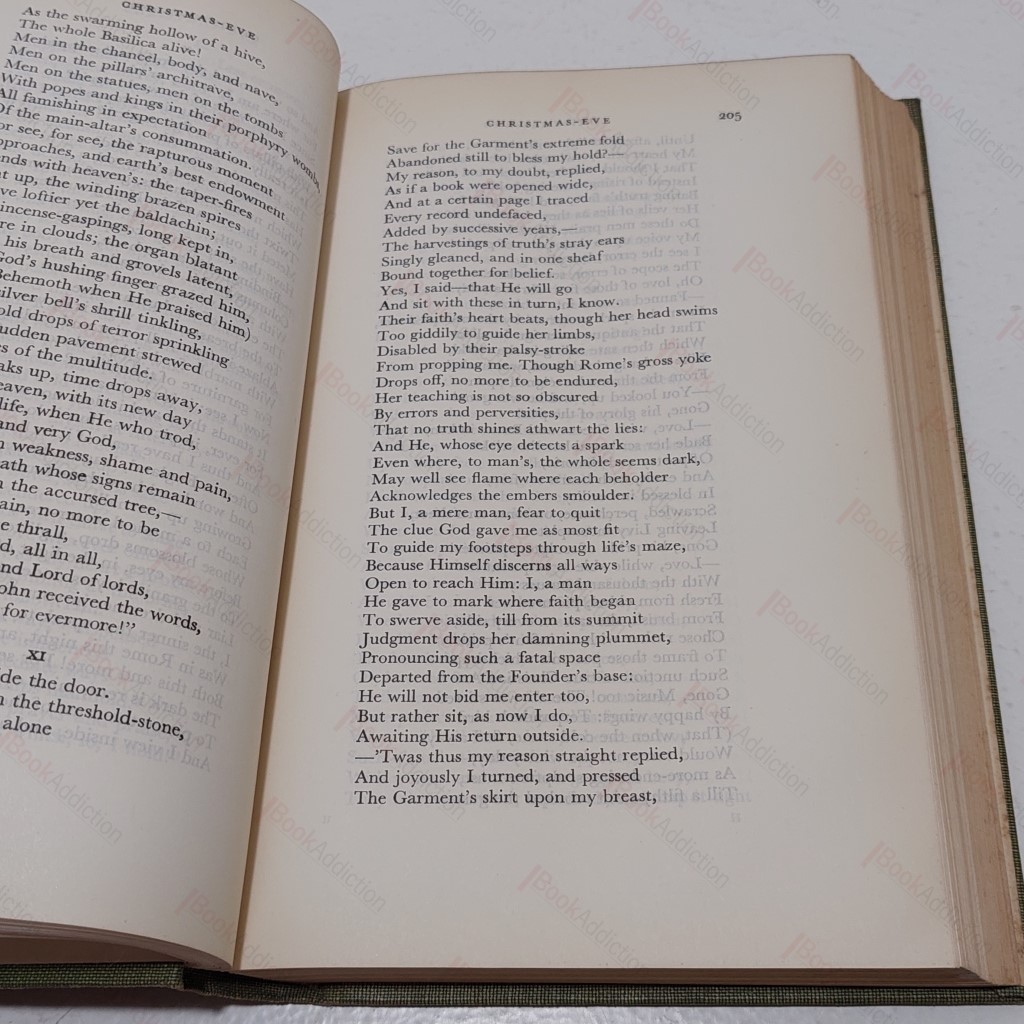 CHRISTMAS-EVE
As the swarming hollow of a hive,
The whole Basilica alive!
Men in the chancel, body, and nave,
Men on the pillars' architrave,
Men on the statues, men on the tombs
With popes and kings in their porphyry wombs,
All famishing in expectation
Of the main-altar's consummation.
or see, for see, the rapturous moment
pproaches, and earth's best endowment
nds with heaven's: the taper-fires
t up, the winding brazen spires
ve loftier yet the baldachin;
incense-gaspings, long kept in,
re in clouds; the organ blatant
his breath and grovels latent,
God's hushing finger grazed him,
Behemoth when He praised him)
silver bell's shrill tinkling,
old drops of terror sprinkling
udden pavement strewed
s of the multitude.
aks up, time drops away,
eaven, with its new day
life, when He who trod,
and very God,
n weakness, shame and pain,
ath whose signs remain
n the accursed tree,—
ain, no more to be
e thrall,
d, all in all,
and Lord of lords,
ohn received the words,
for evermore!"
XI
de the door.
n the threshold-stone,
alone
CHRISTMAS-EVE 205
Save for the Garment's extreme fold
Abandoned still to bless my hold?—
My reason, to my doubt, replied,
As if a book were opened wide,
And at a certain page I traced
Every record undefaced,
Added by successive years,—
The harvestings of truth's stray ears
Singly gleaned, and in one sheaf
Bound together for belief.
Yes, I said—that He will go
And sit with these in turn, I know.
Their faith's heart beats, though her head swims
Too giddily to guide her limbs,
Disabled by their palsy-stroke
From propping me. Though Rome's gross yoke
Drops off, no more to be endured,
Her teaching is not so obscured
By errors and perversities,
That no truth shines athwart the lies:
And He, whose eye detects a spark
Even where, to man's, the whole seems dark,
May well see flame where each beholder
Acknowledges the embers smoulder.
But I, a mere man, fear to quit
The clue God gave me as most fit
To guide my footsteps through life's maze,
Because Himself discerns all ways
Open to reach Him: I, a man
He gave to mark where faith began
To swerve aside, till from its summit
Judgment drops her damning plummet,
Pronouncing such a fatal space
Departed from the Founder's base:
He will not bid me enter too,
But rather sit, as now I do,
Awaiting His return outside.
—'Twas thus my reason straight replied,
And joyously I turned, and pressed
The Garment's skirt upon my breast,
BookAddiction